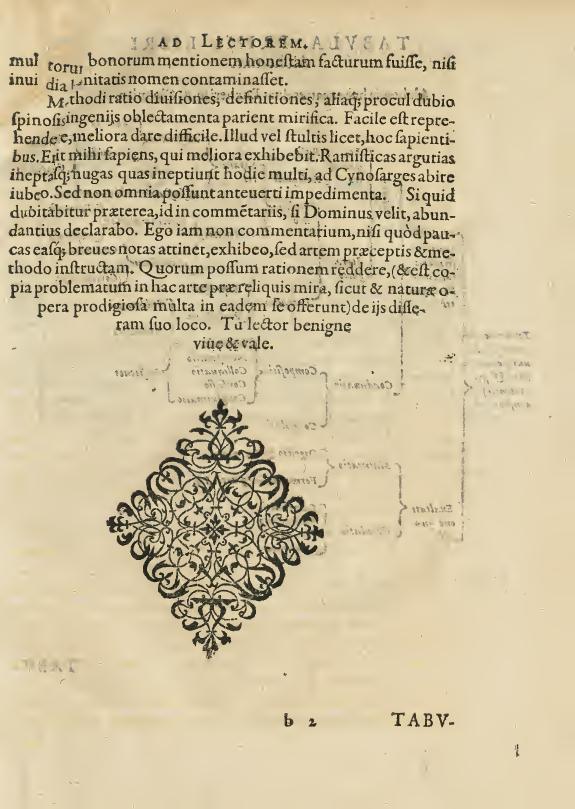 AD LECTOREM.
mul torum bonorum mentionem honeſtam facturum fuiſſe, niſi
inui dia nitatis nomen contaminaſſet.
Methodi ratio diuiſiones, definitiones, aliaq; procul dubio
ſpinoſis ingenijs oblectamenta parient mirifica. Facile eſt repre-
hendere, meliora dare difficile. Illud vel ſtultis licet, hoc ſapienti-
bus. Erit mihi ſapiens, qui meliora exhibebit. Ramiſticas argutias
ineptaſq; nugas quas ineptiunt hodie multi, ad Cynoſarges abire
iubeo. Sed non omnia poſſunt anteuerti impedimenta. Si quid
dubitabitur præterea, id in commētariis, ſi Dominus velit, abun-
dantius declarabo. Ego iam non commentarium, niſi quòd pau-
cas eaſq; breues notas attinet, exhibeo, ſed artem præceptis & me-
thodo inſtructam. Quorum poſſum rationem reddere, (& eſt co-
pia problematum in hac arte præ reliquis mira, ſicut & naturæ o-
pera prodigioſa multa in eadem ſe offerunt) de ijs diſſe-
ram ſuo loco. Tu lector benigne
viue & vale.
b 2 TABV-